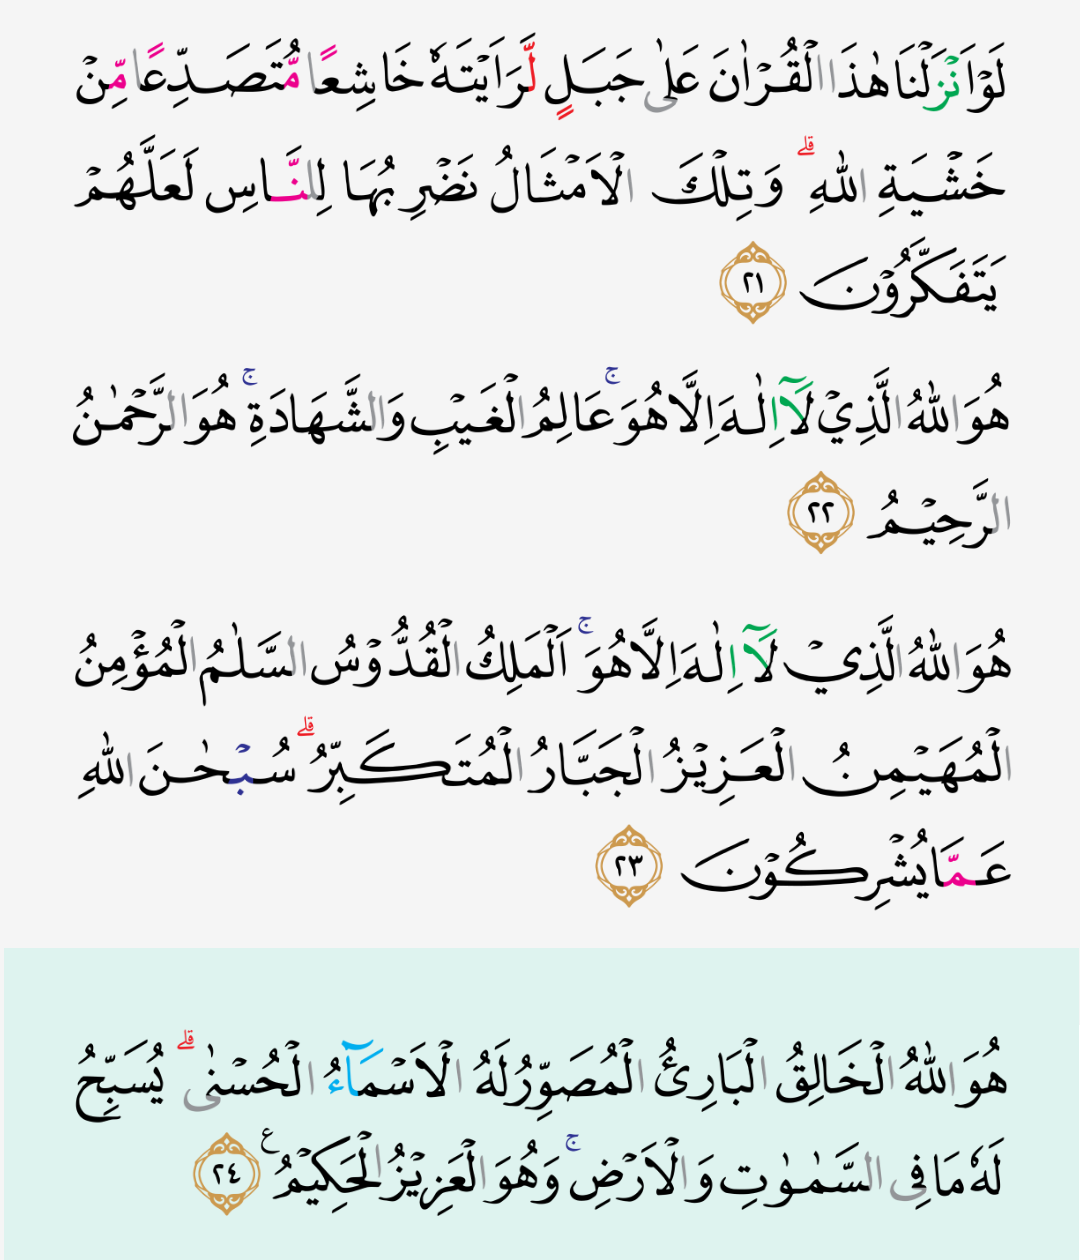 لَوْ اَنْزَلْنَا هٰذَا الْقُرْاٰنَ عَلٰى جَبَلٍ لَّرَاَيْتَهٗ خَاشِعًا مُّتَصَدِّعًا مِّنْ
خَشْيَةِ اللّٰهِ ۗ وَتِلْكَ الْاَمْثَالُ نَضْرِبُهَا لِلنَّاسِ لَعَلَّهُمْ
يَتَفَكَّرُوْنَ ٢١
هُوَ اللّٰهُ الَّذِيْ لَآ اِلٰهَ اِلَّا هُوَ ۚ عَالِمُ الْغَيْبِ وَالشَّهَادَةِ ۚ هُوَ الرَّحْمٰنُ
الرَّحِيْمُ ٢٢
هُوَ اللّٰهُ الَّذِيْ لَآ اِلٰهَ اِلَّا هُوَ ۚ اَلْمَلِكُ الْقُدُّوْسُ السَّلٰمُ الْمُؤْمِنُ
الْمُهَيْمِنُ الْعَزِيْزُ الْجَبَّارُ الْمُتَكَبِّرُ ۗ سُبْحٰنَ اللّٰهِ
عَمَّا يُشْرِكُوْنَ ٢٣
هُوَ اللّٰهُ الْخَالِقُ الْبَارِئُ الْمُصَوِّرُ لَهُ الْاَسْمَاۤءُ الْحُسْنٰى ۗ يُسَبِّحُ
لَهٗ مَا فِى السَّمٰوٰتِ وَالْاَرْضِ ۚ وَهُوَ الْعَزِيْزُ الْحَكِيْمُ ࣖ ٢٤